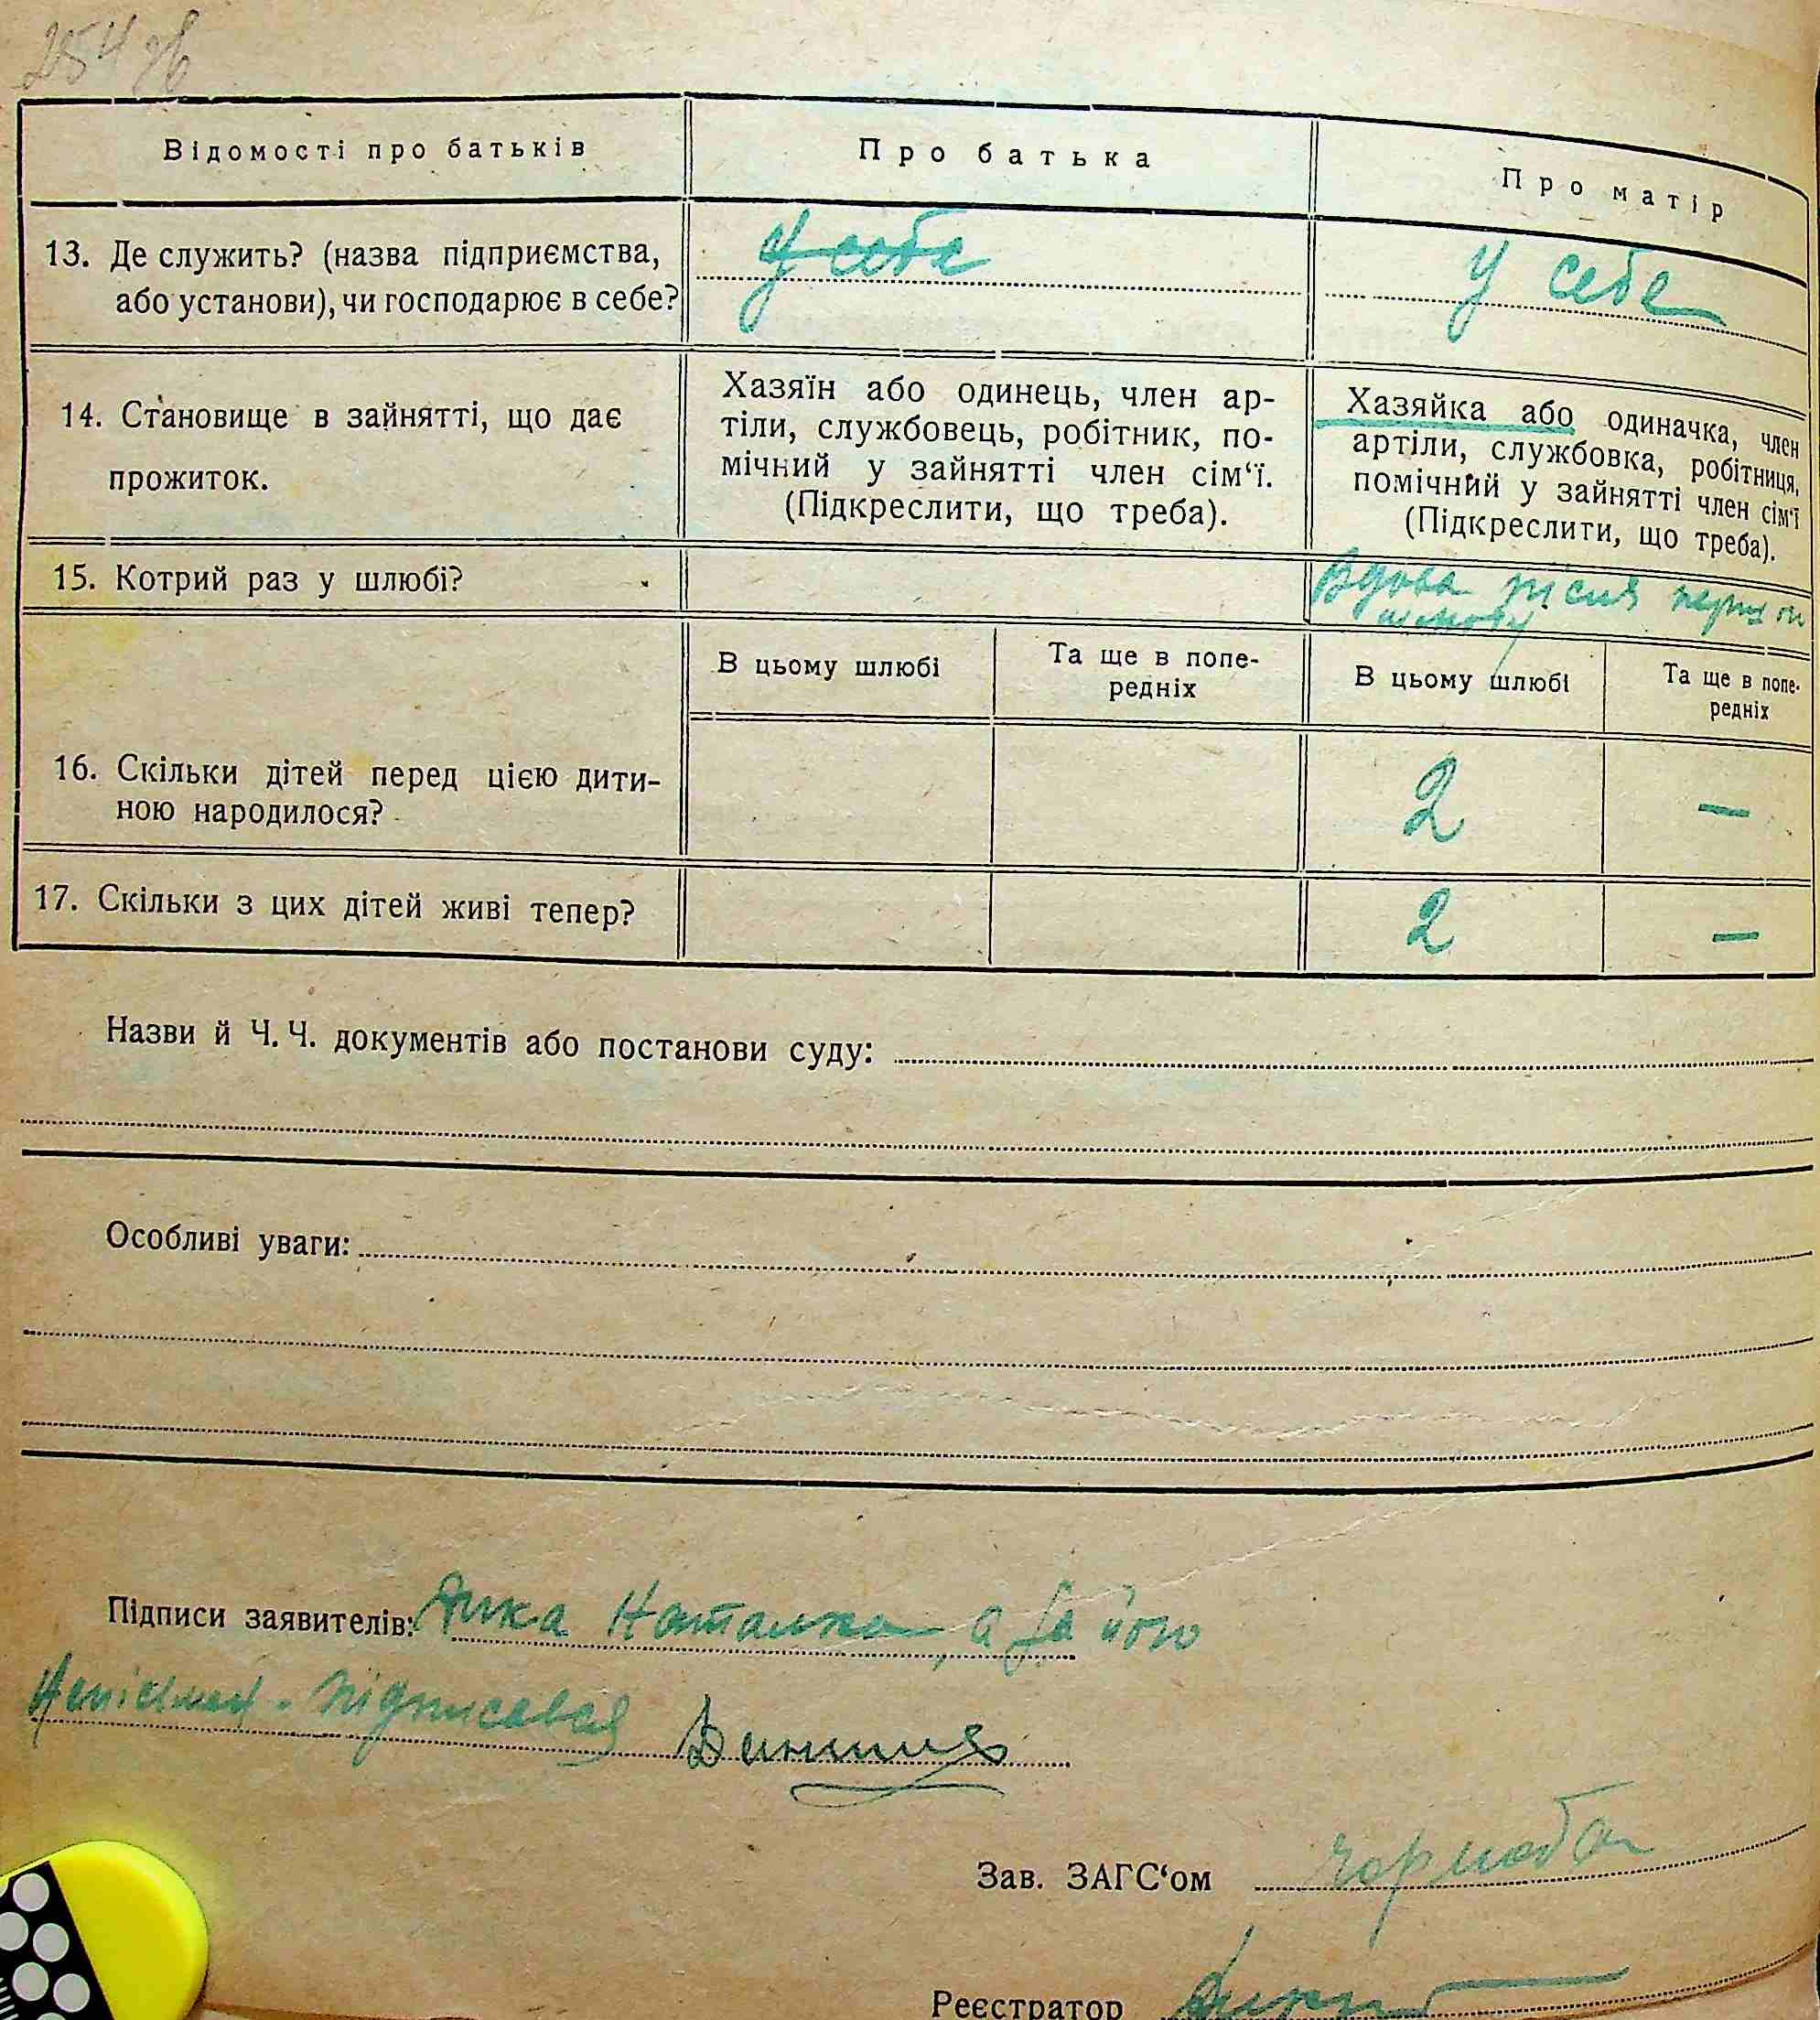 254 зв
Відомості про батьків
Про батька
Про матір
13. Де служить? (назва підприємства,
або установи), чи господарює в себе?
у себе
у себе
14. Становище в зайнятті, що дає
прожиток.
Хазяїн або одинець, член ар-
тіли, службовець, робітник, по-
мічний у зайнятті член сім‘ї.
(Підкреслити, що треба).
Хазяйка або одиначка, член
артіли, службовка, робітниця,
помічний у зайнятті член сім‘ї
(Підкреслити, що треба).
15. Котрий раз у шлюбі?
Вдова після
шлюбу
В цьому шлюбі
Та ще в попе-
редніх
В цьому шлюбі
Та ще в попе-
редніх
16. Скільки дітей перед цією дити-
ною народилося?
2
—
17. Скільки з цих дітей живі тепер?
2
—
Назви й Ч. Ч. документів або постанови суду:
Особливі уваги:
Підписи заявителів: Наталка, а за його
підписався
Зав. ЗАГС‘ом
Реєстратор